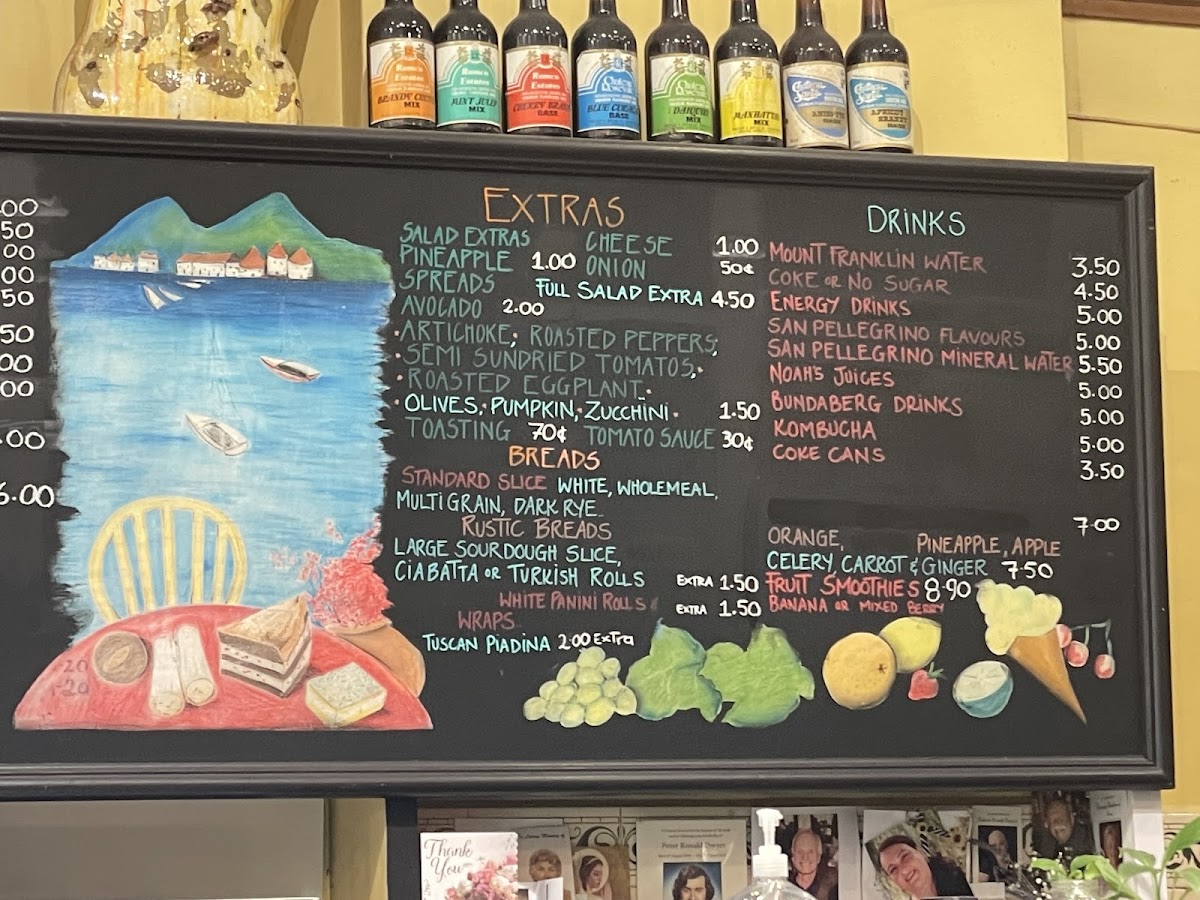 Rumen Estates BRANDY CRUSTA MIX
Rumen Estates MINT JULEP MIX
Rumen Estates CHERRY BRANDY BASE
BLUE CURACAO BASE
DAIQUIRI MIX
MANHATTAN MIX
APRICOT BRANDY
EXTRAS
SALAD EXTRAS CHEESE 1.00
PINEAPPLE 1.00 ONION 50¢
SPREADS FULL SALAD EXTRA 4.50
AVOCADO 2.00
·ARTICHOKE, ROASTED PEPPERS,
·SEMI SUNDRIED TOMATOS,·
·ROASTED EGGPLANT·
·OLIVES,·PUMPKIN,·ZUCCHINI· 1.50
TOASTING 70¢ TOMATO SAUCE 30¢
BREADS
STANDARD SLICE WHITE, WHOLEMEAL,
MULTI GRAIN, DARK RYE
RUSTIC BREADS
LARGE SOURDOUGH SLICE,
CIABATTA OR TURKISH ROLLS EXTRA 1.50
WHITE PANINI ROLLS EXTRA 1.50
WRAPS
TUSCAN PIADINA 2.00 EXTRA
DRINKS
MOUNT FRANKLIN WATER 3.50
COKE OR NO SUGAR 4.50
ENERGY DRINKS 5.00
SAN PELLEGRINO FLAVOURS 5.00
SAN PELLEGRINO MINERAL WATER 5.50
NOAH'S JUICES 5.00
BUNDABERG DRINKS 5.00
KOMBUCHA 5.00
COKE CANS 3.50
7.00
ORANGE, PINEAPPLE, APPLE
CELERY, CARROT & GINGER 7.50
FRUIT SMOOTHIES 8.90
BANANA OR MIXED BERRY
.00
50
00
00
50
50
00
00
.00
6.00
20
-20
Thank You
Peter Ronald Dwyer